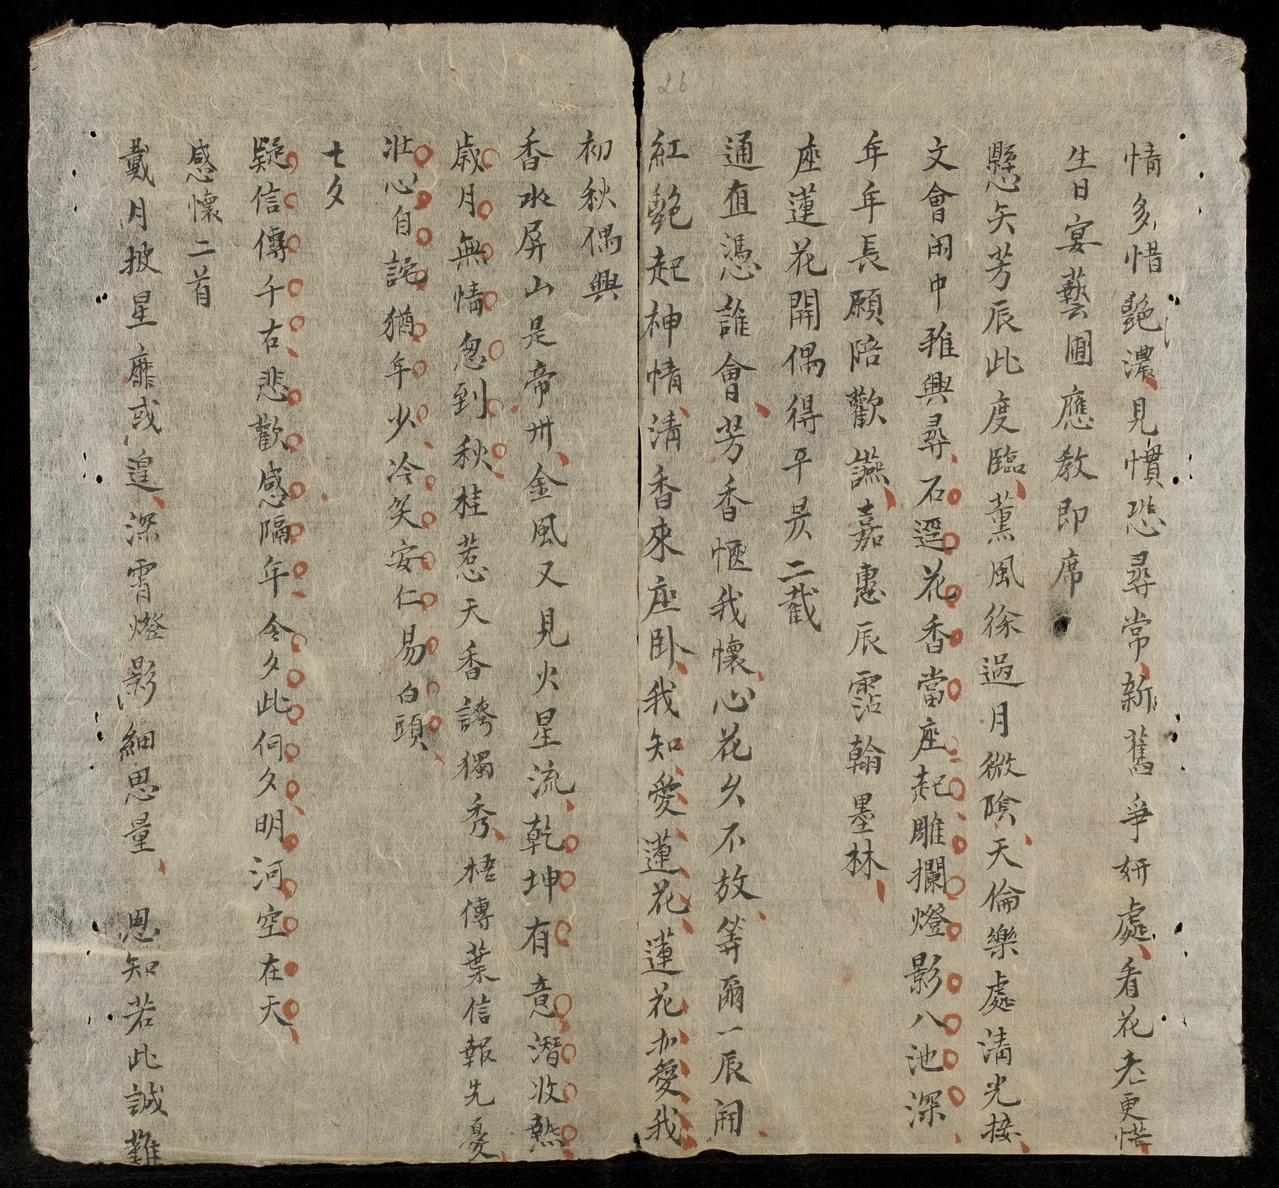 情多惜艶濃見慣恐尋常新舊爭妍處看花老更惜
生日宴藝圃應教即席
懸矢芳辰此度臨薰風徐過月微陰天倫樂處清光接
文會閑中雅興尋石逕花香當座起雕欄燈影入池深
年年長願陪歡讌嘉惠辰霑翰墨林
座蓮花開偶得平炅二截
通直憑誰會芳香愜我懷心花久不放等爾一辰開
紅艶起神情清香來座卧我知愛蓮花蓮花亦愛我
初秋偶興
香水屏山是帝州金風又見火星流乾坤有意潛收熱
歲月無情忽到秋桂惹天香誇獨秀梧傳葉信報先憂
壯心自詫猶年少冷笑安仁易白頭
七夕
疑信傳千古悲歡感隔年今夕此何夕明河空在天
感懷二首
戴月披星靡或遑深霄燈影細思量 恩知若此誠難
26